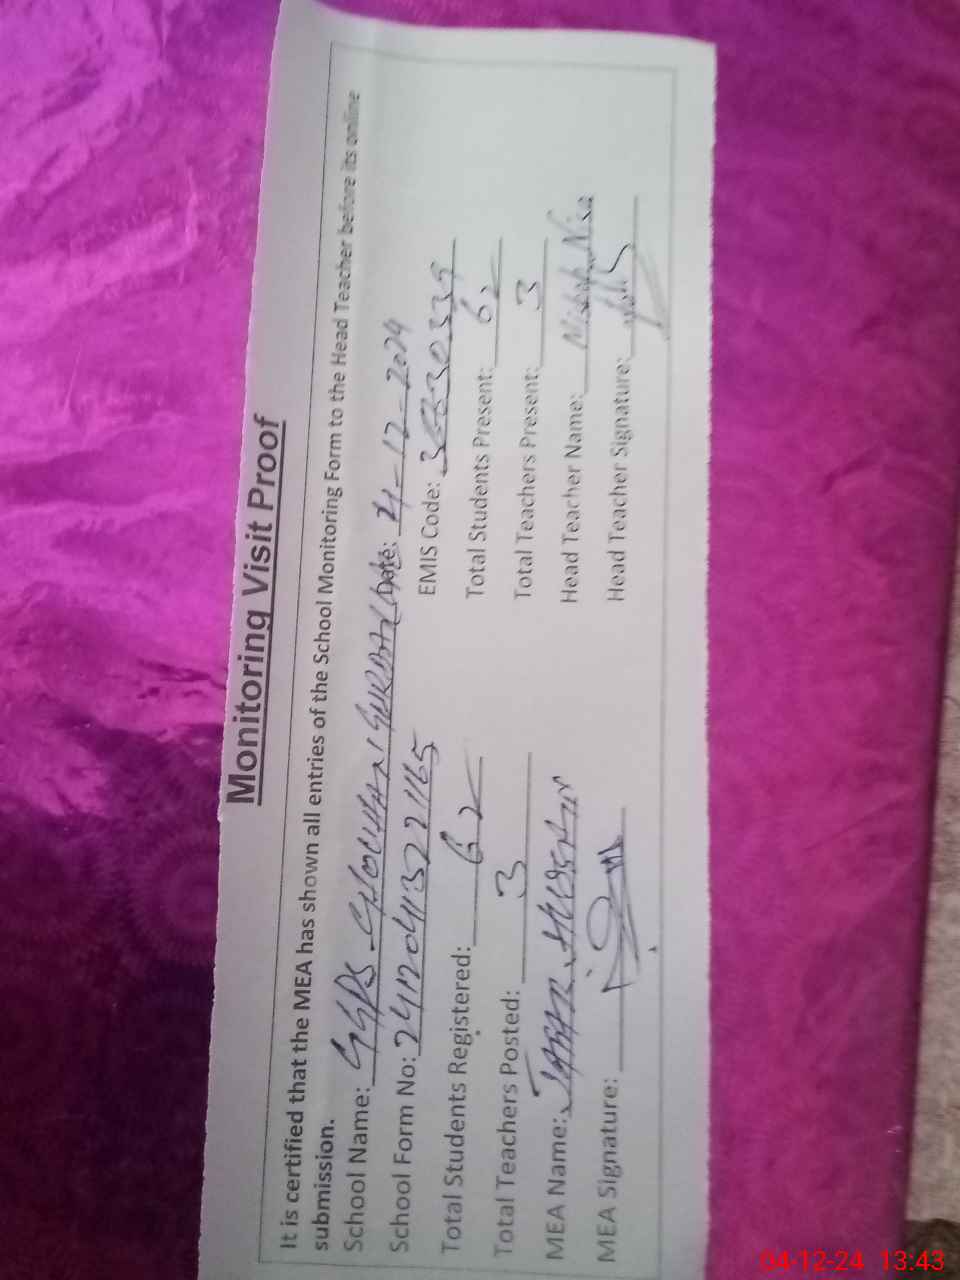 Monitoring Visit Proof
It is certified that the MEA has shown all entries of the School Monitoring Form to the Head Teacher before its online
submission.
School Name: GGPS Date: 4-12-2024
School Form No: 24120413221165 EMIS Code:
Total Students Registered: 62 Total Students Present: 62
Total Teachers Posted: 3 Total Teachers Present: 3
MEA Name: Head Teacher Name: Nisa
MEA Signature: Head Teacher Signature:
04-12-24 13:43